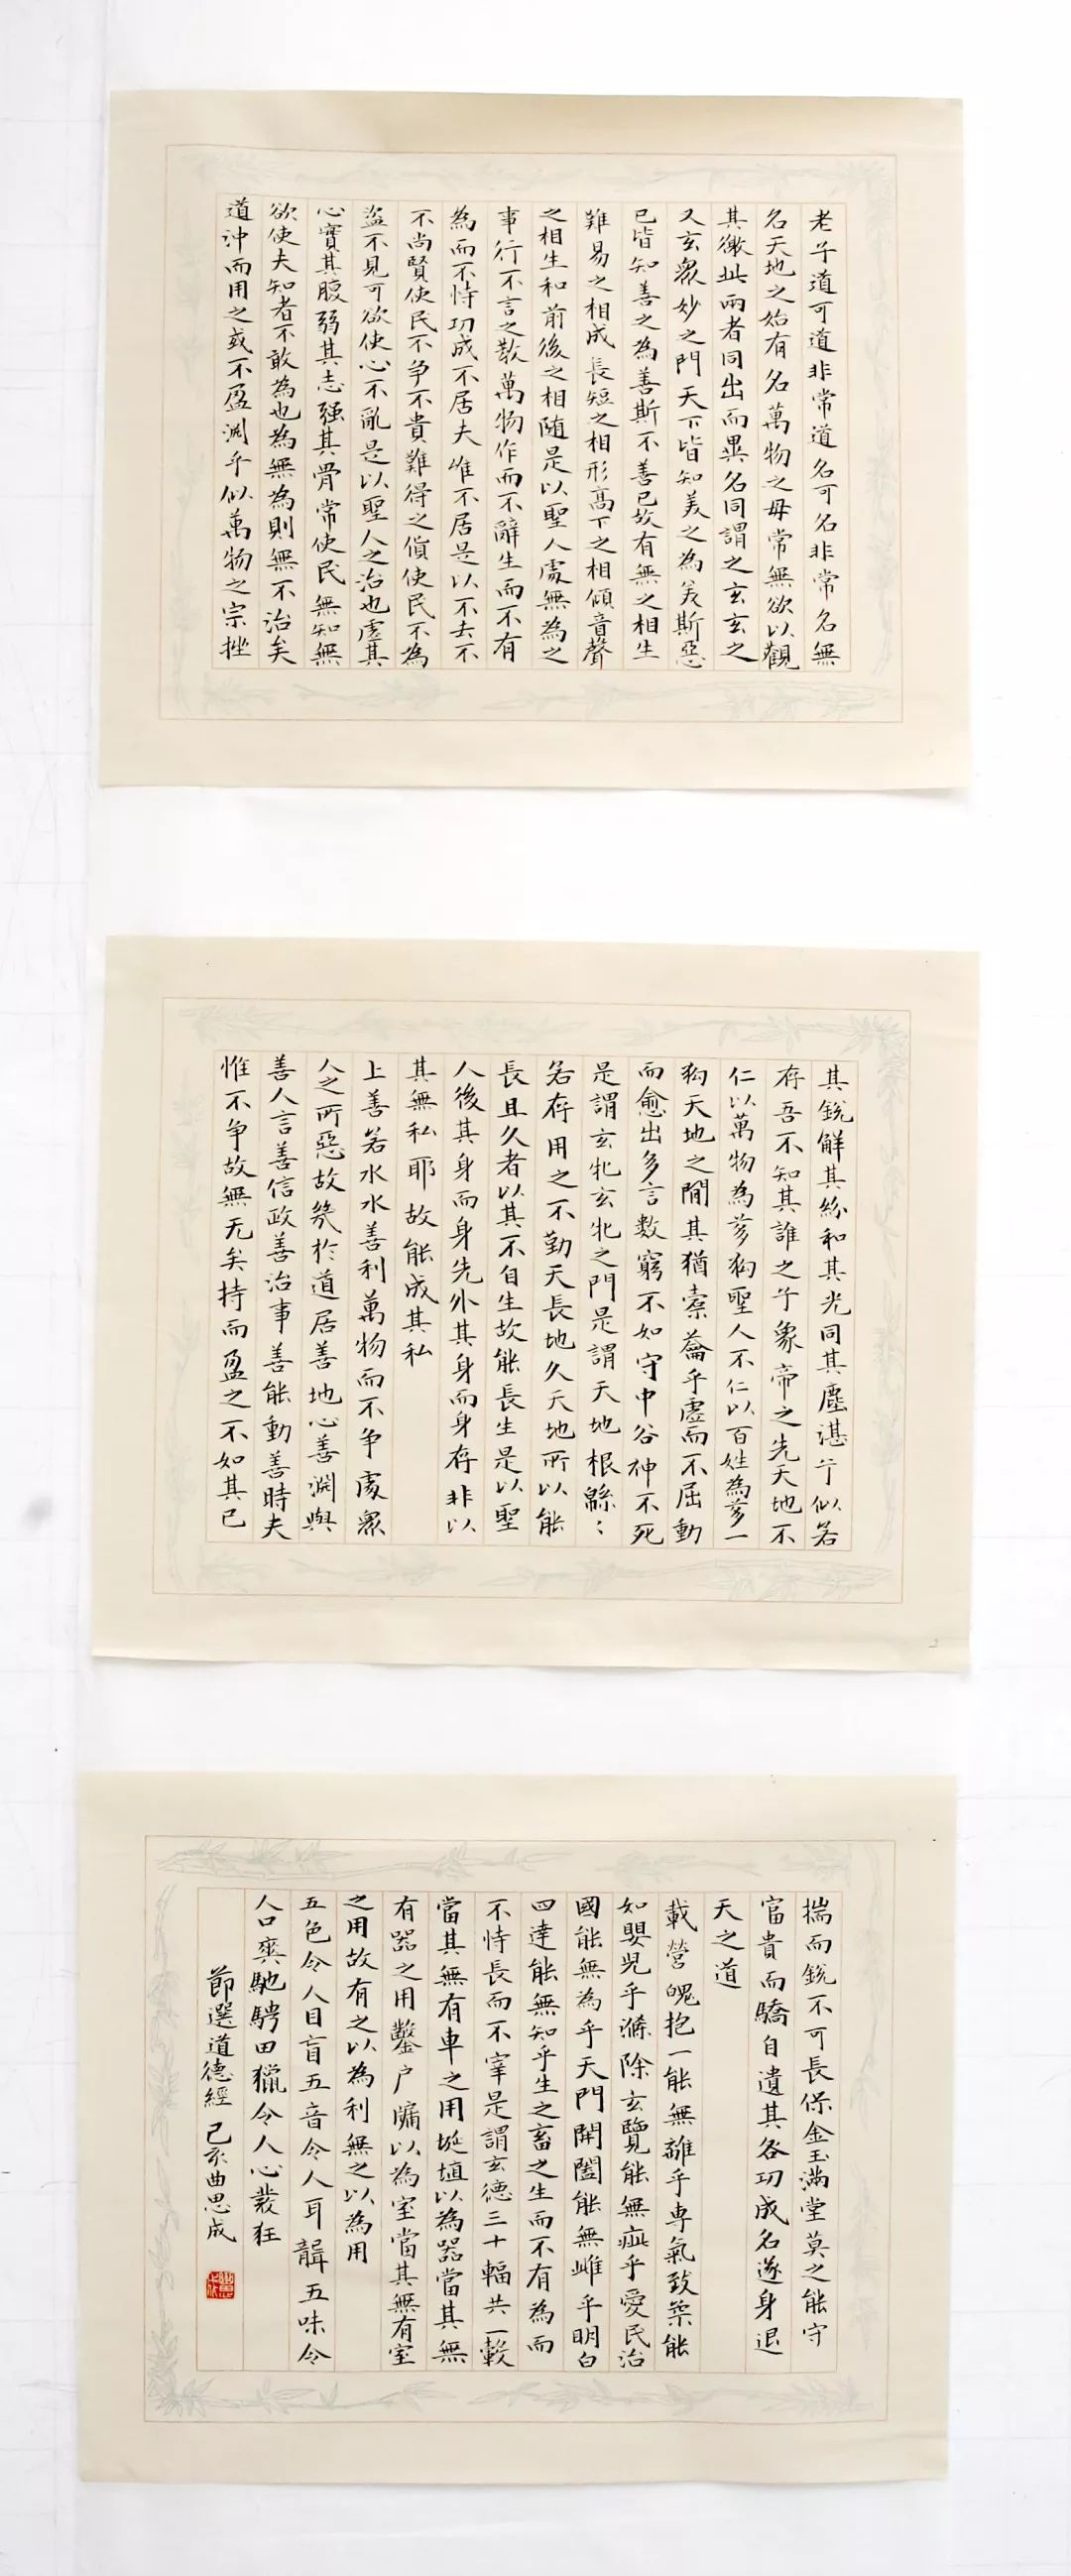 老子道可道非常道名可名非常名無
名天地之始有名萬物之母常無欲以觀
其徼此兩者同出而異名同謂之玄玄之
又玄眾妙之門天下皆知美之為美斯惡
已皆知善之為善斯不善已故有無之相生
難易之相成長短之相形高下之相傾音聲
之相生和前後之相随是以聖人處無為之
事行不言之教萬物作而不辭生而不有
為而不恃功成不居夫惟不居是以不去不
不尚賢使民不争不貴難得之貨使民不為
盜不見可欲使心不亂是以聖人之治也虛其
心實其腹弱其志强其骨常使民無知無
欲使夫知者不敢為也為無為則無不治矣
道沖而用之或不盈淵乎似萬物之宗挫
其銳解其紛和其光同其塵湛兮似若
存吾不知其誰之子象帝之先天地不
仁以萬物為芻狗聖人不仁以百姓為芻一
狗天地之間其猶橐籥乎虛而不屈動
而愈出多言數窮不如守中谷神不死
是謂玄牝玄牝之門是謂天地根緜〻
若存用之不勤天長地久天地所以能
長且久者以其不自生故能長生是以聖
人後其身而身先外其身而身存非以
其無私耶故能成其私
上善若水水善利萬物而不争處眾
人之所惡故幾於道居善地心善淵與
善人言善信政善治事善能動善時夫
惟不争故無尤矣持而盈之不如其已
揣而銳不可長保金玉滿堂莫之能守
富貴而驕自遺其咎功成名遂身退
天之道
載營魄抱一能無離乎專氣致柔能
如嬰兒乎滌除玄覽能無疵乎愛民治
國能無為乎天門開闔能無雌乎明白
四達能無知乎生之畜之生而不有為而
不恃長而不宰是謂玄德三十輻共一轂
當其無有車之用埏埴以為器當其無
有器之用鑿户牖以為室當其無有室
之用故有之以為利無之以為用
五色令人目盲五音令人耳聾五味令
人口爽馳騁田獵令人心發狂
節選道德經己亥曲思成